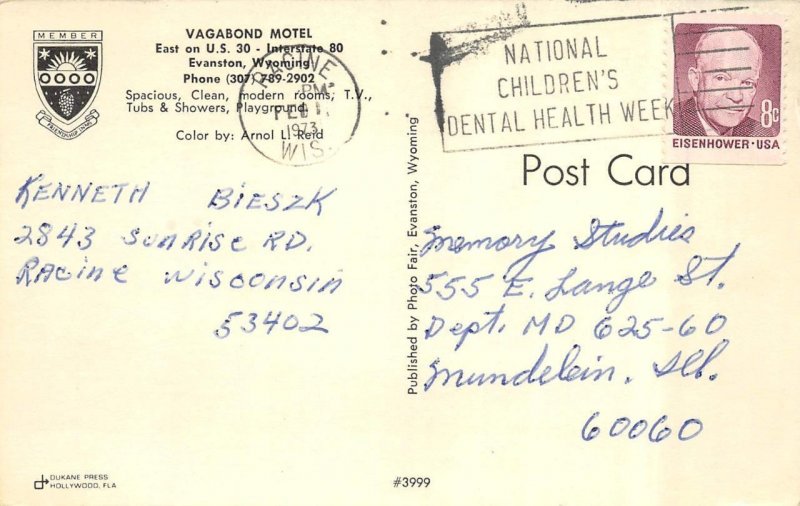 MEMBER
FRIENDSHIP INNS
VAGABOND MOTEL
East on U.S. 30 - Interstate 80
Evanston, Wyoming
Phone (307) 789-2902
Spacious, Clean, modern rooms, T.V.,
Tubs & Showers, Playground.
Color by: Arnol L. Reid
RACINE
PM
FEB
1973
WIS.
NATIONAL
CHILDREN'S
DENTAL HEALTH WEEK
8c
EISENHOWER·USA
Post Card
KENNETH BIESZK
2843 SUNRISE RD.
RACINE WISCONSIN
53402
Published by Photo Fair, Evanston, Wyoming
Memory Studies
555 E. Lange St.
Dept. MD 625-60
Mundelein, Ill.
60060
DUKANE PRESS
HOLLYWOOD, FLA
#3999